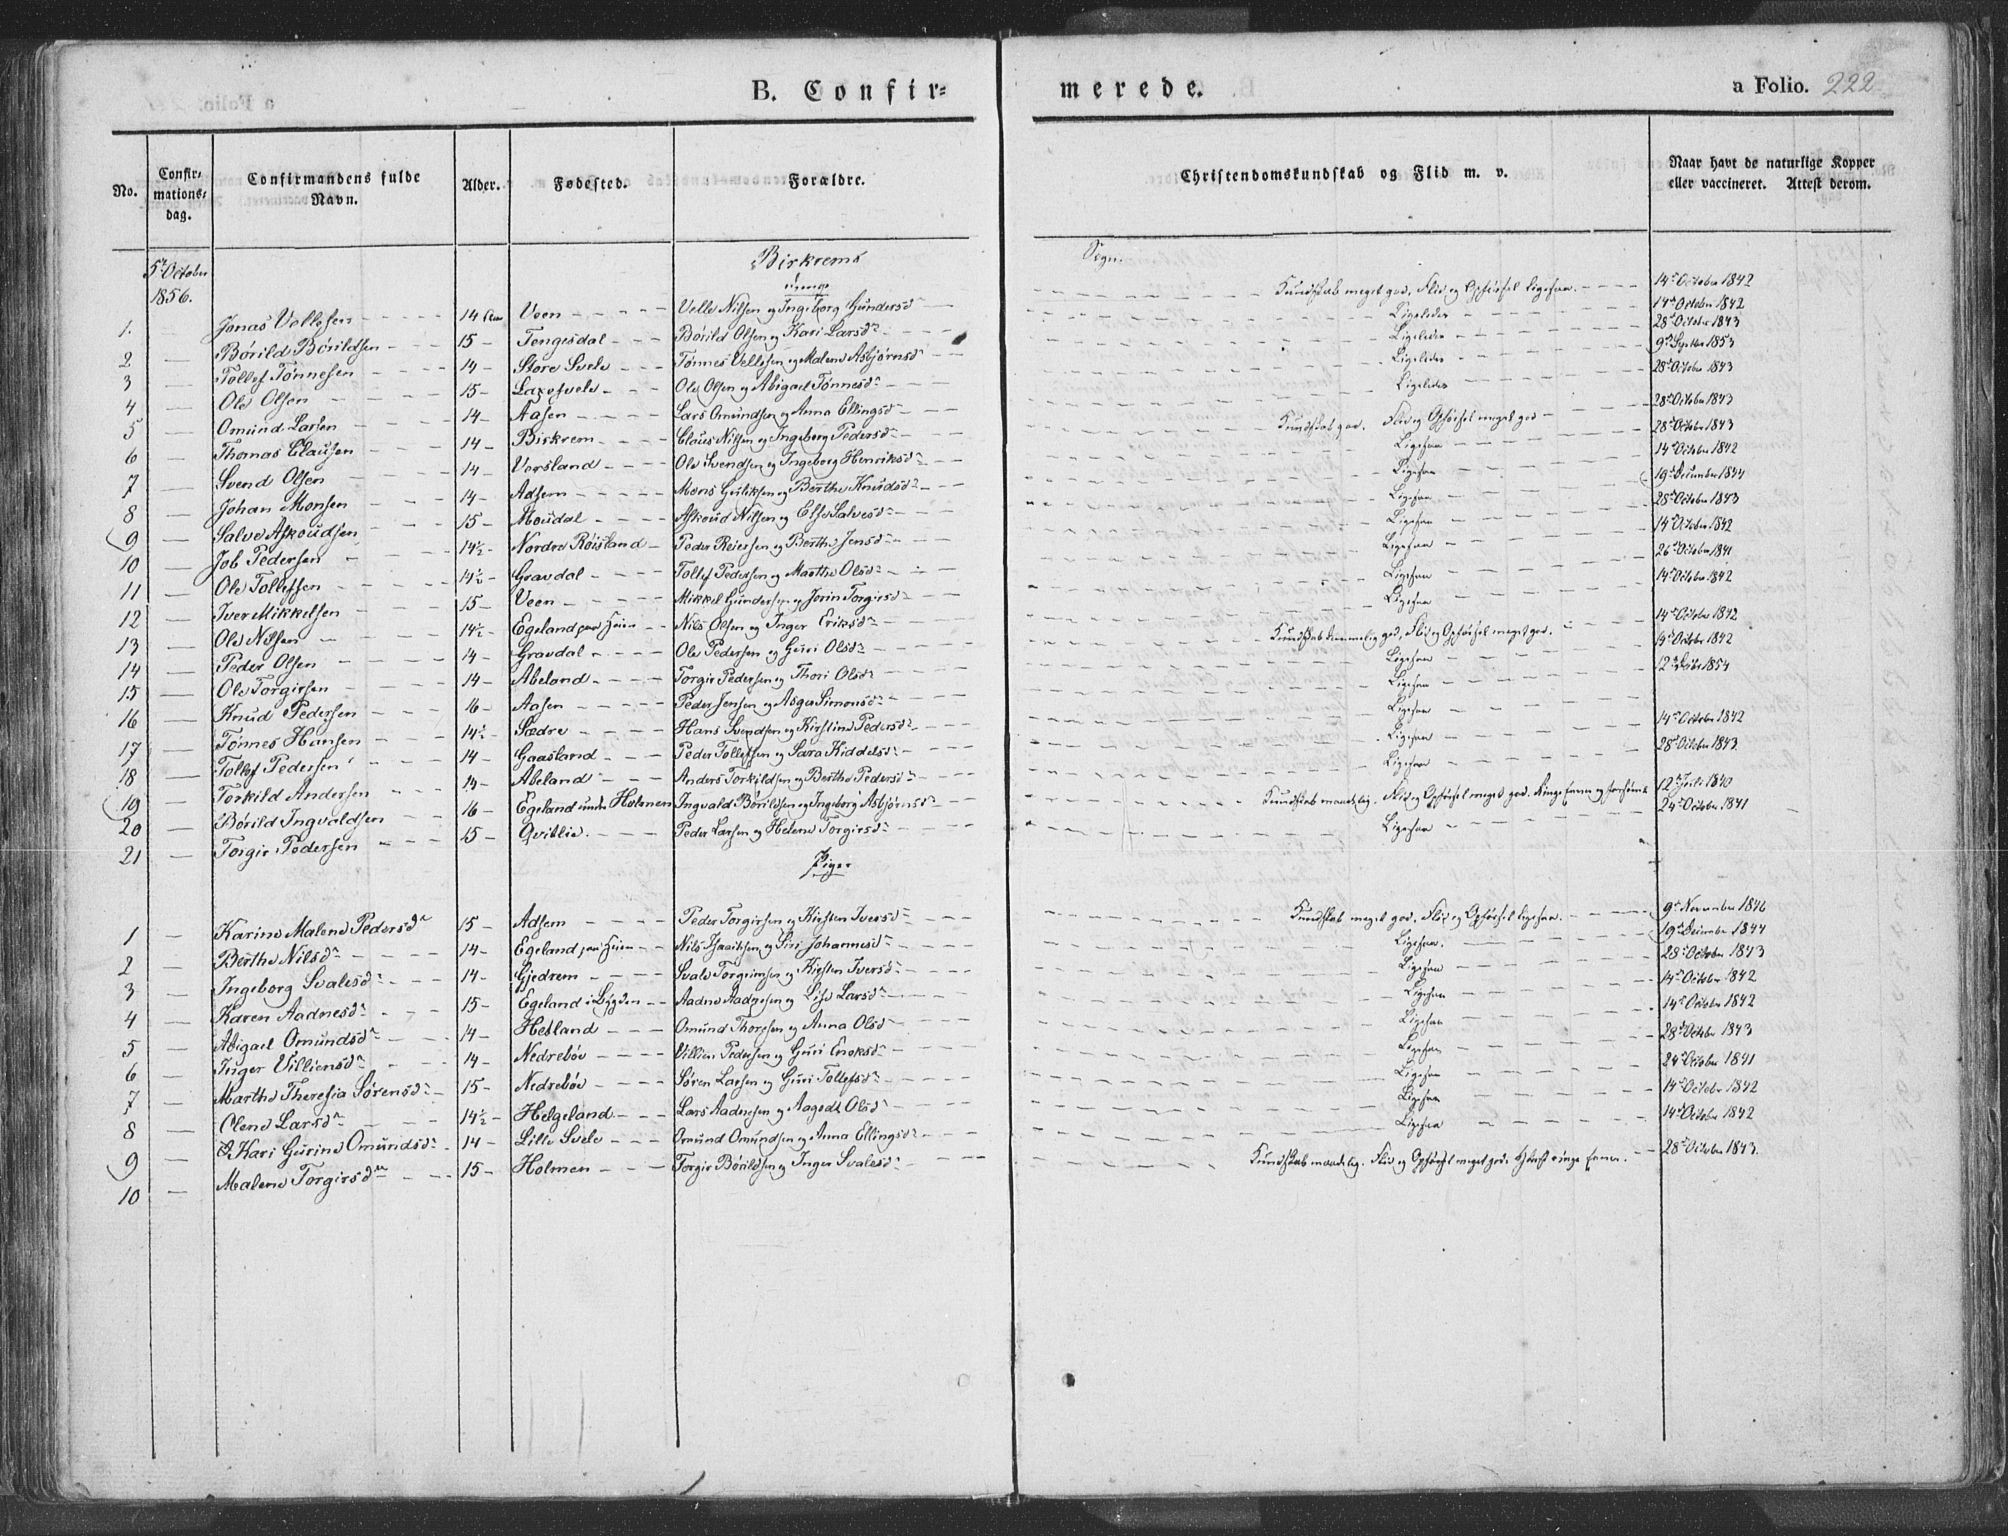 B. Confir=
merede.
a Folio. 222
No.
Confir-
mations-
dag.
Confirmandens fulde
Navn.
Alder.
Fødested.
Forældre.
Christendomskundskab og Flid m. v.
Naar havt de naturlige Kopper
eller vaccineret. Attest derom.
5t October
1856.
Birkrems
Sogn.
1. Jonas Vellesen 14 Veen Velle Nilsen og Ingeborg Gundersd Kundskab meget god, Flid og Opførsel ligesaa. 14de October 1842
2 Børild Børildsen 15 Tengesdal Børild Olsen og Kari Larsdr Ligeledes 14de October 1842
3 Tollef Tønnesen 14 Store Svele Tønnes Vellesen og Malene Asbjørnsdr Ligeledes 28de October 1843
4 Ole Olsen 15 Laxesvele Ole Olsen og Abigael Tønnesdr Ligeledes 9de Septber 1853
5 Omund Larsen 14 Aasen Lars Omundsen og Anna Ellingsd Ligeledes 28de October 1843
6 Thomas Clausen 14 Birkrem Claus Nilsen og Ingeborg Pedersdr Kundskab god. Flid og Opførsel meget god 28de October 1843
7 Svend Olsen 14 Versland Ole Svendsen og Ingeborg Henriksdr Ligesaa 28de October 1843
8 Johan Monsen 14 Adsem Mons Guliksen og Berthe Knudsdr Ligesaa 14de October 1842
9 Salve Askoudsen 15 Moudal Askoud Nilsen og Else Salvesdr Ligesaa 19de December 1844
10 Job Pedersen 14½ Nordre Røisland Peder Reiersen og Berthe Jensdr Ligesaa 28de October 1843
11 Ole Tollefsen 14½ Gravdal Tollef Pedersen og Marthe Olsdr Ligesaa 14de October 1842
12 Iver Mikkelsen 15 Veen Mikkel Gundersen og Jorin Torgirsdr Ligesaa 26de October 1841
13 Ole Nilsen 14½ Egeland paa Heien Nils Olsen og Inger Eriksdr Ligesaa 14de October 1842
14 Peder Olsen 14 Gravdal Ole Pedersen og Guri Olsdr Kundskab temmelig god, Flid og Opførsel meget god. 14de October 1842
15 Ole Torgirsen 14 Abeland Torgir Pedersen og Thori Olsdr Ligesaa 14de October 1842
16 Knud Pedersen 16 Aasen Peder Jensen og Asger Simonsdr Ligesaa 1854
17 Tønnes Hansen 14½ Sædre Hans Svendsen og Kirstine Pedersdr Ligesaa 14de October 1842
18 Tollef Pedersen 14 Gaasland Peder Tollefsen og Sara Kiddelsdr Ligesaa 28de October 1843
19 Torkild Andersen 14 Abeland Anders Torkildsen og Berthe Pedersdr Ligesaa
20 Børild Ingvaldsen 16 Egeland under Holmen Ingvald Børildsen og Ingeborg Asbjørnsdr Kundskab maadelig. Flid og Opførsel meget god. Ringe Evner og 12te Juli 1840
21 Torgir Pedersen 15 Qvitlie. Peder Larsen og Helene Torgirsdr Ligesaa 24de October 1841
Piger
1 Karine Malene Pedersdr 15 Adsem Peder Torgirsen og Kirsten Iversdr Kundskab meget god, Flid og Opførsel ligesaa. 9de November 1846
2 Berthe Nilsdr 14 Egeland paa Heien Nils Isaaksen og Siri Johannesdr Ligesaa. 19de December 1844
3 Ingeborg Svalesdr 14 Gjedrem Svale Torgeimsen og Kirsten Iversdr Ligesaa 28de October 1843
4 Karen Aadnesdr 15 Egeland i Bygden Aadne Aadnesen og Lise Larsdr Ligesaa 14de October 1842
5 Abigael Omundsdr 14 Hetland Omund Thoresen og Anna Olsdr Ligesaa 14de October 1842
6 Inger Villiensdr 14 Nedrebøe Villien Pedersen og Guri Enoksdr Ligesaa 28de October 1843
7 Marthe Theresia Sørensdr 15 Nedrebøe Søren Larsen og Guri Tollefsdr Ligesaa 24de October 1841
8 Olene Larsdr 14½ Helgeland Lars Aadnesen og Aagodt Olsdr Ligesaa 14de October 1842
9 Kari Gurine Omundsdr 14 Lille Svele Omund Omundsen og Anna Ellingsdr Ligesaa 14de October 1842
10 Malene Torgirsdr 15 Holmen Torgir Børildsen og Inger Svalesdr Kundskab maadelig. Flid og Opførsel meget god. ringe Evner. 28de October 1843.